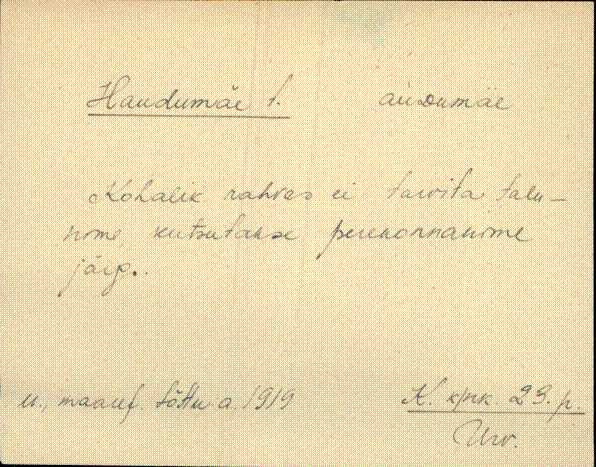 Haudumäe t. auDumäe
Kohalik rahvas ei tarvita talu-
nime kutsutakse perekonnanime
järg..
u., maauf. tõttu a. 1919 K. kprk. 23. p.
Urv.